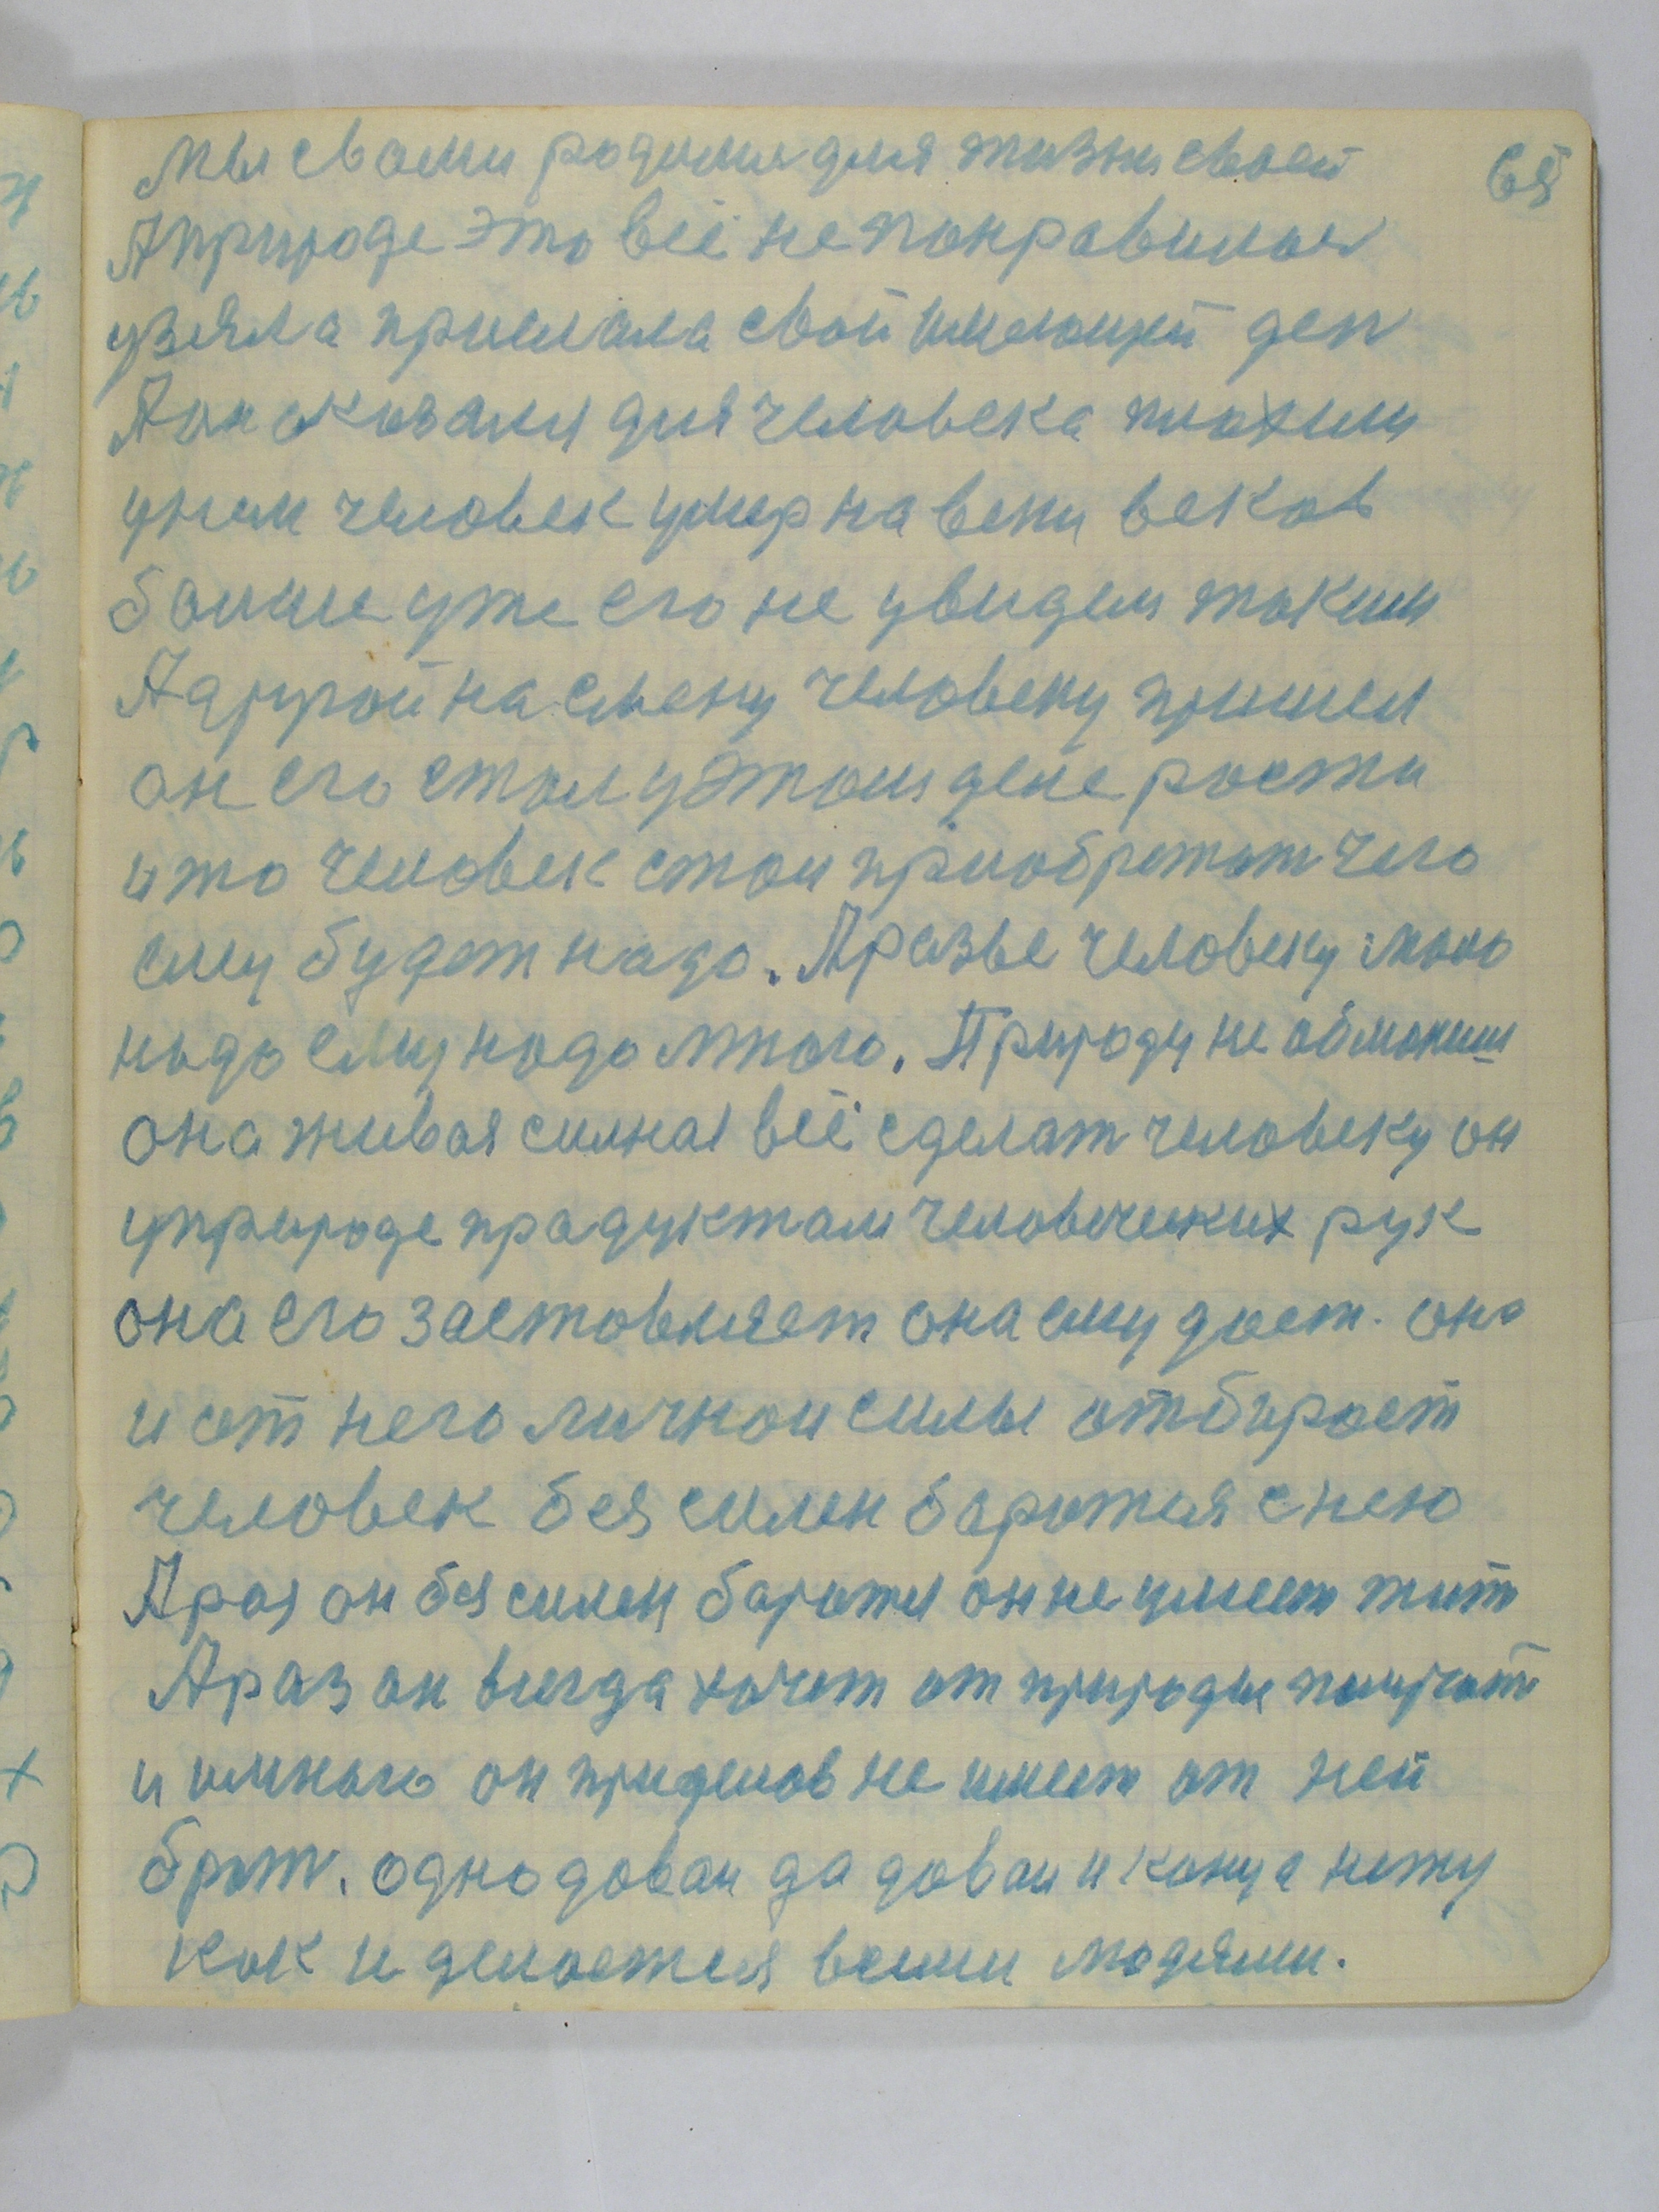 мы с вами родили для жизни своей
65
А природе это всё не понравилось
узяла прислала свой имеющий ден
А он оказался для человека плохим
у нем человек умер на веки веков
болше уже его не увидем таким
А другой на смену человеку пришел
он его стал у этом деле рости
и то человек стал приобретат чего
ему будет надо. А разве человеку мало
надо ему надо много. Природу не обманиш
она живая силная всё сделат человеку он
у природе продуктам человеческих рук
она его заставляет она ему дает. она
и от него личнои силы отбирает
человек бессилен баротся с нею
А раз он бессилен баротся он не умеет жит
А раз он всегда хочет от природы получат
и много он приделов не имеет от ней
брат. одно даваи да даваи и конца нету
как и делается всеми людями.